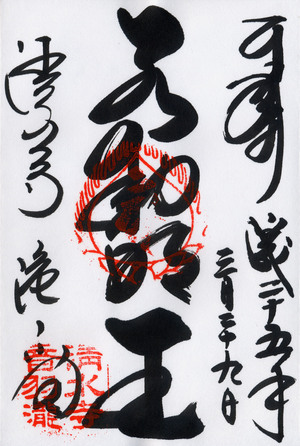 奉拝
平成二十五年
三月二十九日
不動明王
清水寺
滝ノ堂
清水寺
音羽瀧